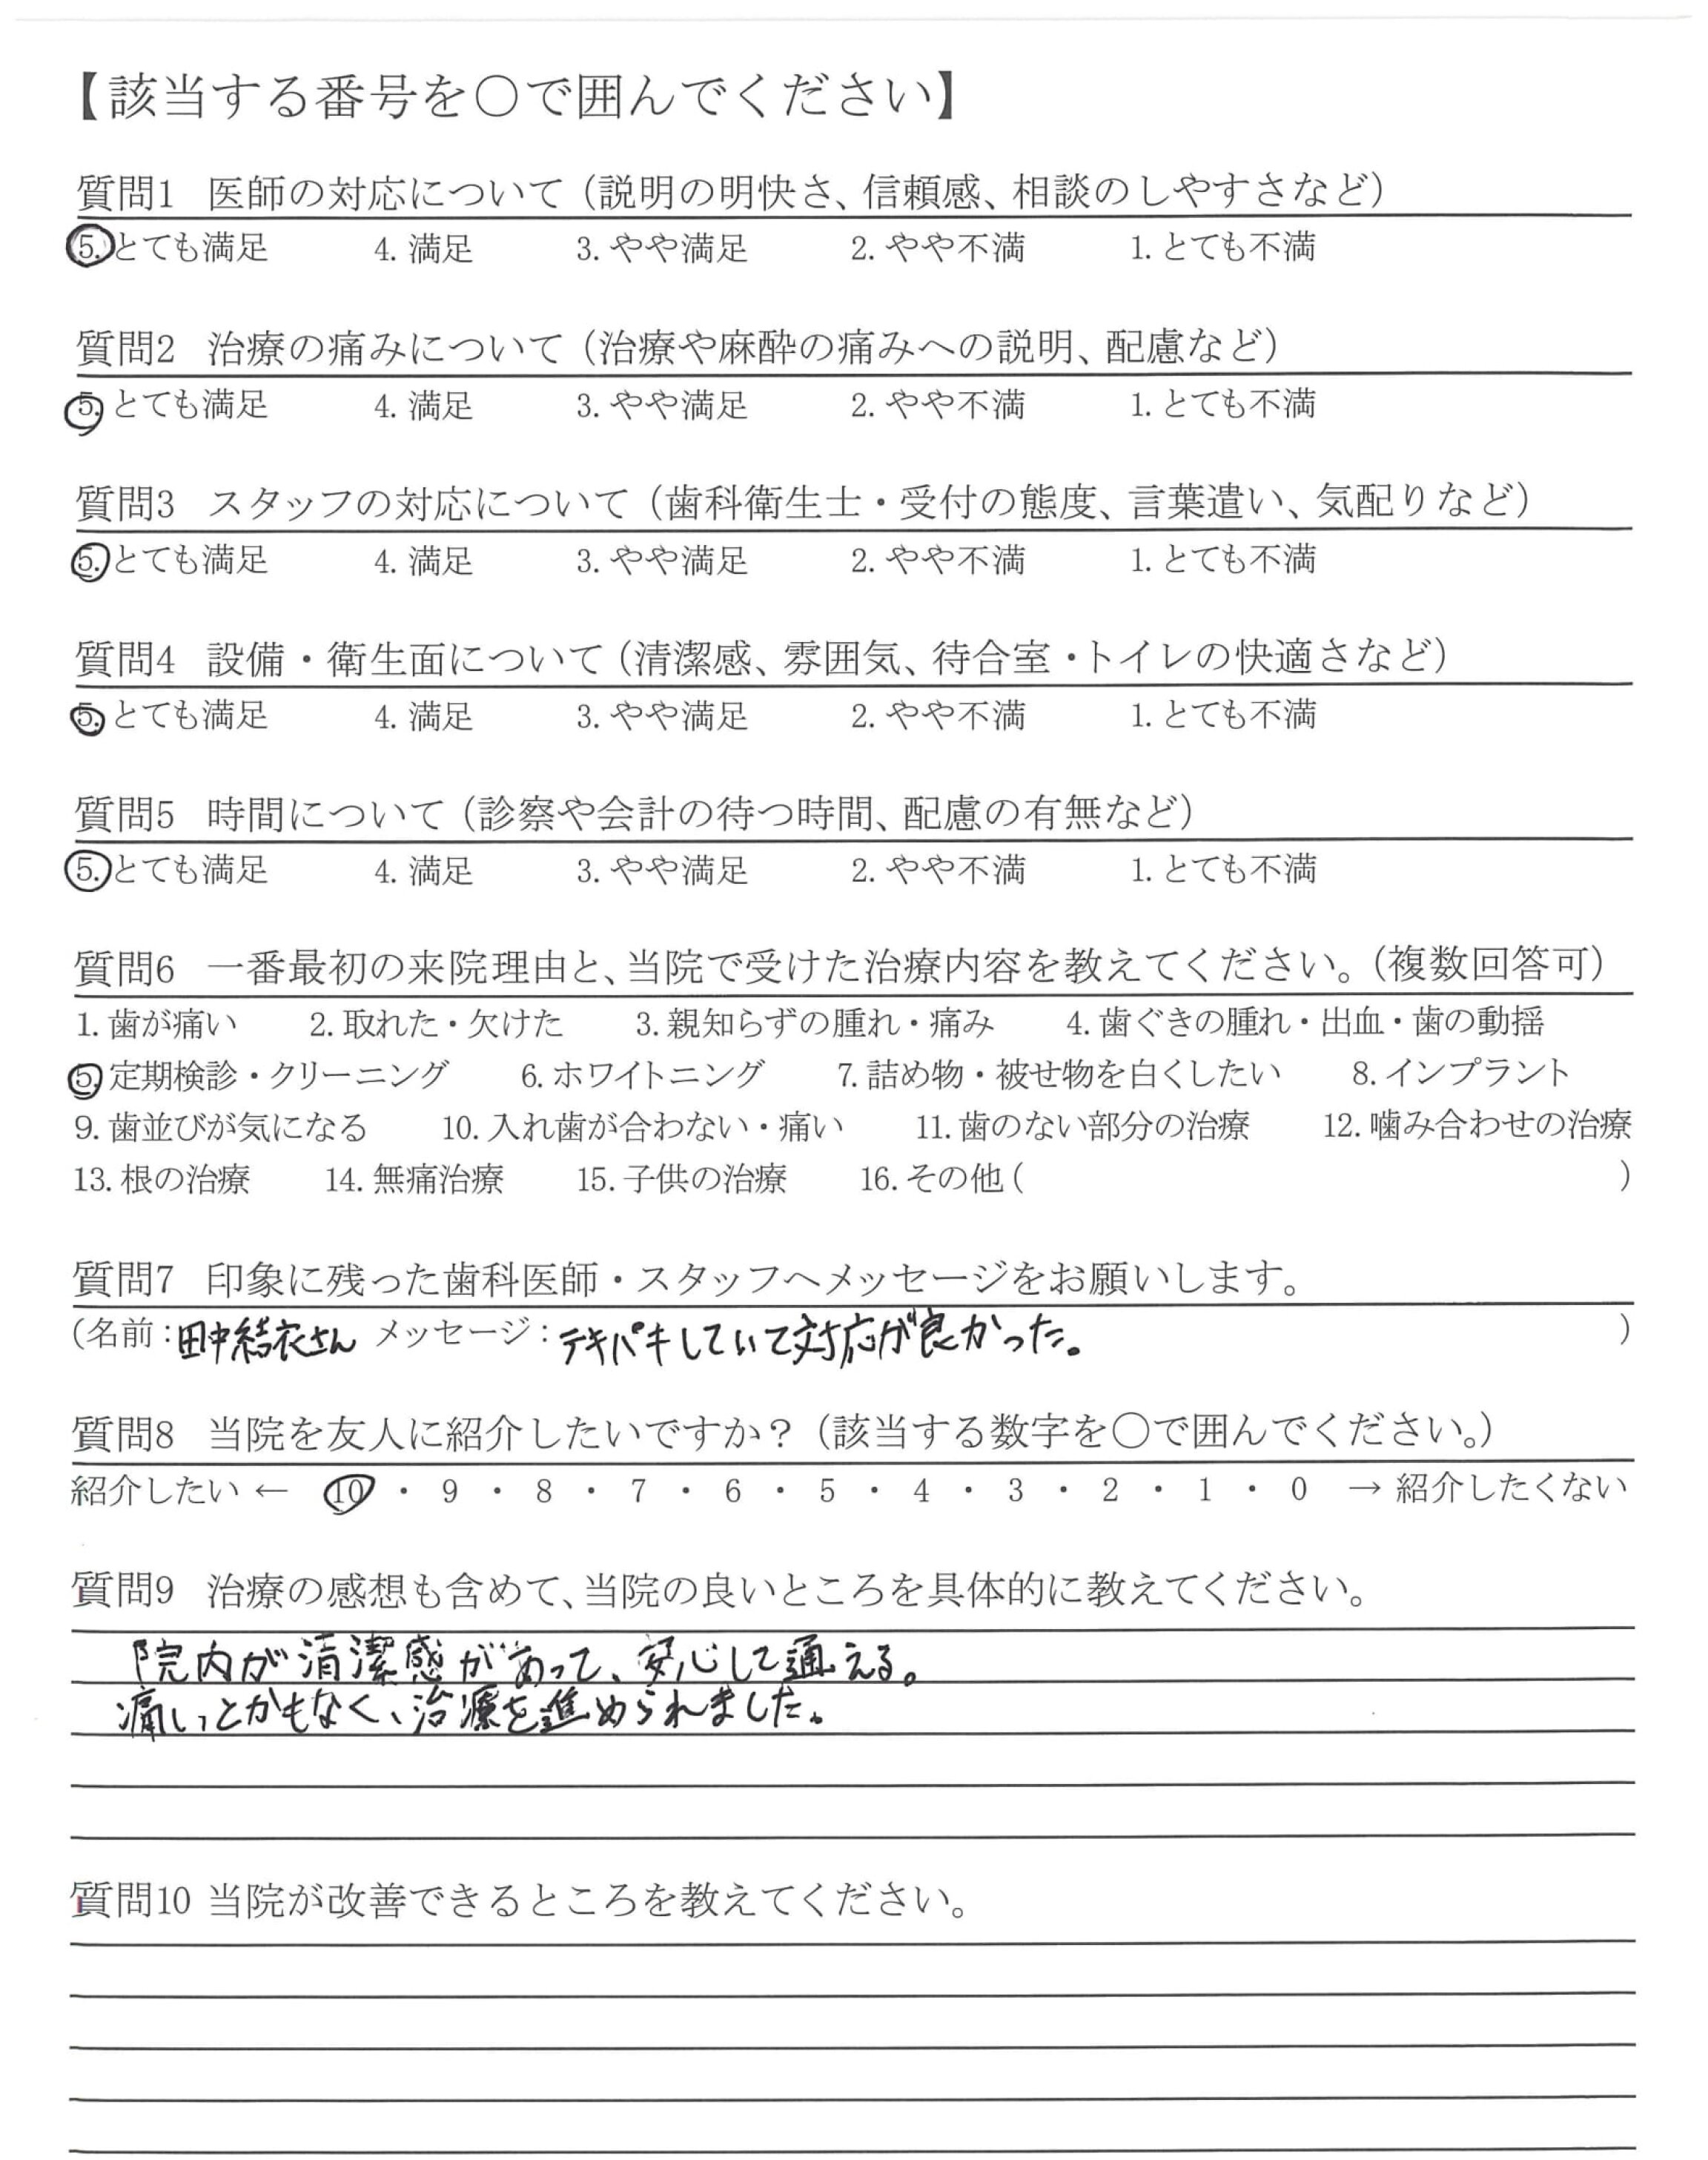 【該当する番号を○で囲んでください】
質問1 医師の対応について（説明の明快さ、信頼感、相談のしやすさなど）
5. とても満足 4. 満足 3. やや満足 2. やや不満 1. とても不満
質問2 治療の痛みについて（治療や麻酔の痛みへの説明、配慮など）
5. とても満足 4. 満足 3. やや満足 2. やや不満 1. とても不満
質問3 スタッフの対応について（歯科衛生士・受付の態度、言葉遣い、気配りなど）
5. とても満足 4. 満足 3. やや満足 2. やや不満 1. とても不満
質問4 設備・衛生面について（清潔感、雰囲気、待合室・トイレの快適さなど）
5. とても満足 4. 満足 3. やや満足 2. やや不満 1. とても不満
質問5 時間について（診察や会計の待つ時間、配慮の有無など）
5. とても満足 4. 満足 3. やや満足 2. やや不満 1. とても不満
質問6 一番最初の来院理由と、当院で受けた治療内容を教えてください。（複数回答可）
1. 歯が痛い 2. 取れた・欠けた 3. 親知らずの腫れ・痛み 4. 歯ぐきの腫れ・出血・歯の動揺
5. 定期検診・クリーニング 6. ホワイトニング 7. 詰め物・被せ物を白くしたい 8. インプラント
9. 歯並びが気になる 10. 入れ歯が合わない・痛い 11. 歯のない部分の治療 12. 噛み合わせの治療
13. 根の治療 14. 無痛治療 15. 子供の治療 16. その他（ ）
質問7 印象に残った歯科医師・スタッフへメッセージをお願いします。
（名前：田中結衣さん メッセージ：テキパキしていて対応が良かった。 ）
質問8 当院を友人に紹介したいですか？（該当する数字を○で囲んでください。）
紹介したい ← 10 ・ 9 ・ 8 ・ 7 ・ 6 ・ 5 ・ 4 ・ 3 ・ 2 ・ 1 ・ 0 → 紹介したくない
質問9 治療の感想も含めて、当院の良いところを具体的に教えてください。
院内が清潔感があって、安心して通える。
痛いとかもなく、治療を進められました。
質問10 当院が改善できるところを教えてください。